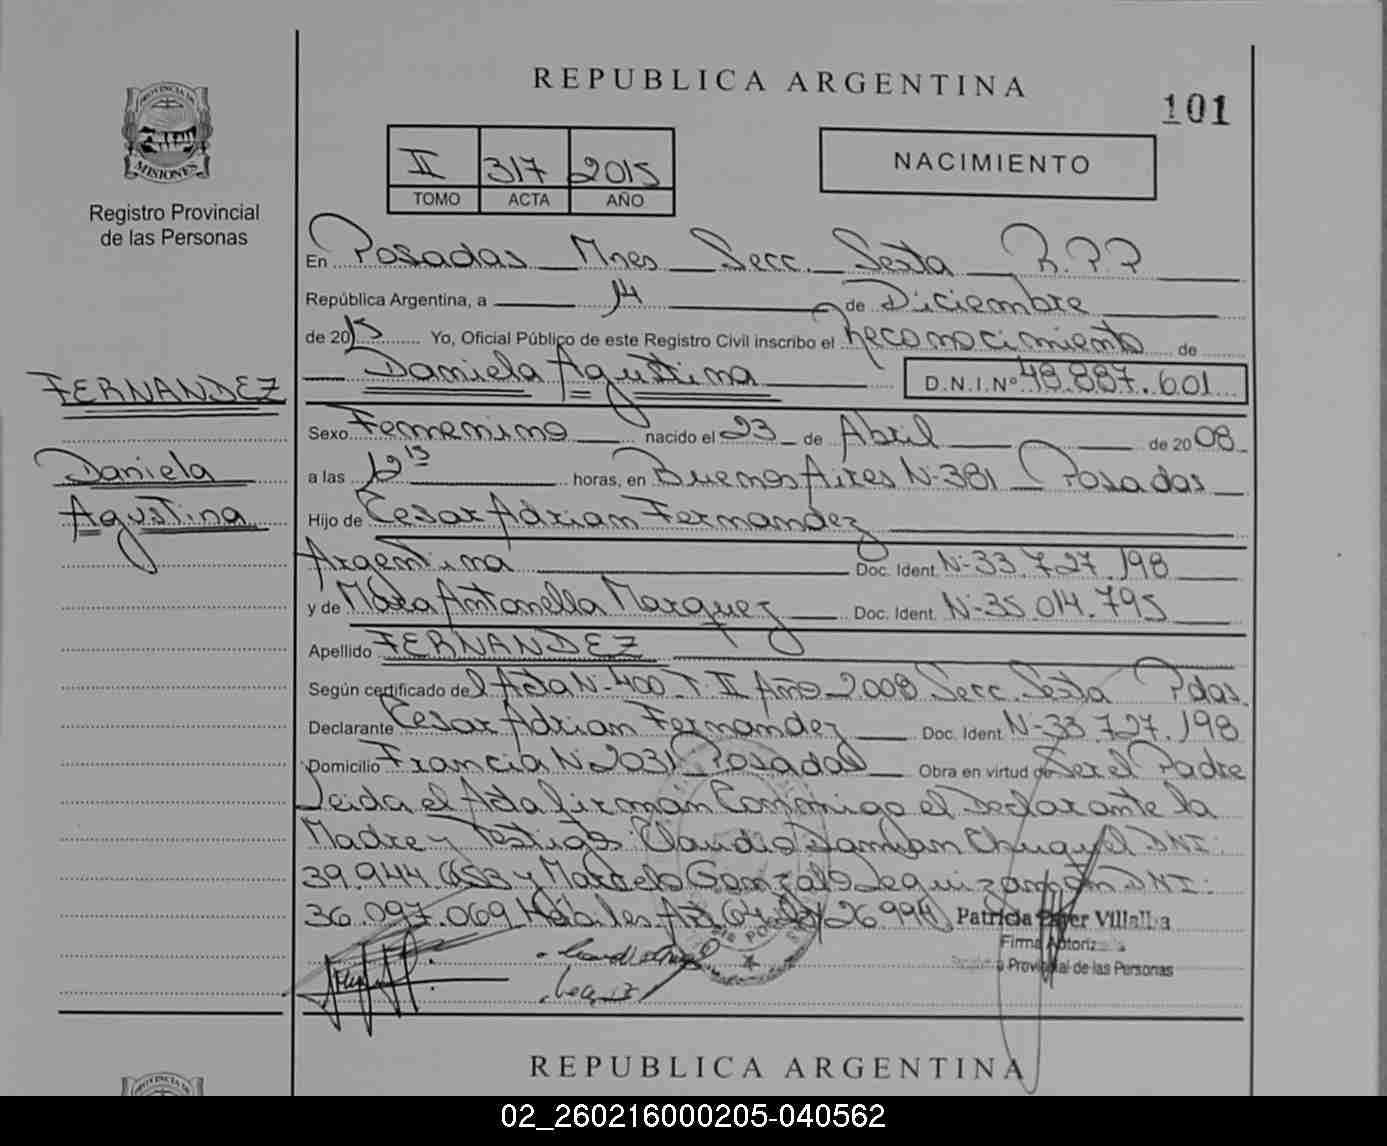 REPUBLICA ARGENTINA
101
PROVINCIA DE
MISIONES
Registro Provincial
de las Personas
II 317 2015
TOMO ACTA AÑO
NACIMIENTO
En Posadas Mnes Secc. Sexta R.P.P
República Argentina, a 14 de Diciembre
de 2015 Yo, Oficial Público de este Registro Civil inscribo el Reconocimiento de
Daniela Agustina D.N.I.Nº 48.887.601
FERNANDEZ
Daniela
Agustina
Sexo Femenino nacido el 23 de Abril de 2008
a las 12 15 horas, en Buenos Aires N-381 Posadas
Hijo de Cesar Adrian Fernandez
Argentina Doc. Ident. N-33.727.198
y de Mara Antonella Marquez Doc. Ident. N-35.014.795
Apellido FERNANDEZ
Según certificado del Acta N-400 T. II Año 2008 Secc. Sexta Pdas.
Declarante Cesar Adrian Fernandez Doc. Ident. N-33.727.198
Domicilio Francia N 2031 Posadas Obra en virtud de Ser el Padre
Leida el Acta firman Conmigo el Declarante la
Madre y Testigos: Claudio Damian Chuquel DNI:
39.944.653 y Marcelo Gonzalo Leguizamon DNI:
36.097.069 Hábiles Art 64 26994
Patricia Villalba
Firma Autoriz
Provincial de las Personas
REPUBLICA ARGENTINA
02_260216000205-040562